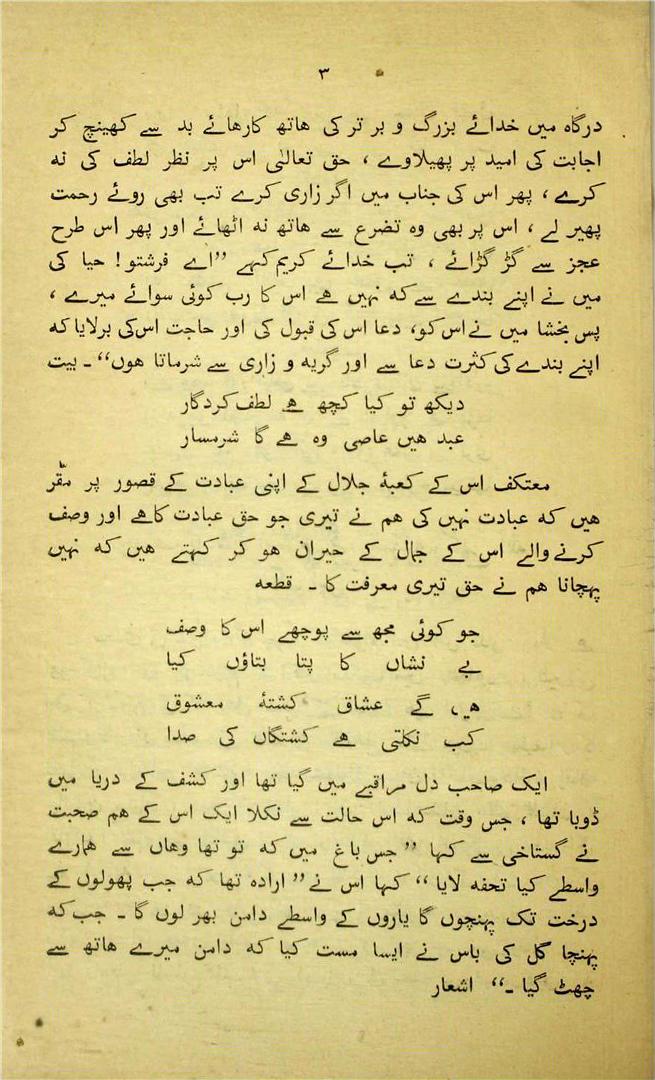 ۳
درگاہ میں خدائے بزرگ و بر تر کی ہاتھ کارہائے بد سے کھینچ کر
اجابت کی امید پر پھیلاوے ، حق تعالیٰ اس پر نظر لطف کی نہ
کرے ، پھر اس کی جناب میں اگر زاری کرے تب بھی روئے رحمت
پھیر لے ، اس پر بھی وہ تضرع سے ہاتھ نہ اٹھائے اور پھر اس طرح
عجز سے گڑ گڑائے ، تب خدائے کریم کہے ”اے فرشتو ! حیا کی
میں نے اپنے بندے سے کہ نہیں ہے اس کا رب کوئی سوائے میرے ،
پس بخشا میں نے اس کو، دعا اس کی قبول کی اور حاجت اس کی برلایا کہ
اپنے بندے کی کثرت دعا سے اور گریہ و زاری سے شرماتا ہوں“ ۔ بیت
دیکھ تو کیا کچھ ہے لطف کردگار
عبد ہیں عاصی وہ ہے گا شرمسار
معتکف اس کے کعبۂ جلال کے اپنی عبادت کے قصور پر مقّر
ہیں کہ عبادت نہیں کی ہم نے تیری جو حق عبادت کا ہے اور وصف
کرنے والے اس کے جمال کے حیران ہو کر کہتے ہیں کہ نہیں
پہچانا ہم نے حق تیری معرفت کا ۔ قطعہ
جو کوئی مجھ سے پوچھے اس کا وصف
بے نشاں کا پتا بتاؤں کیا
ہیں گے عشاق کشتۂ معشوق
کب نکلتی ہے کشتگاں کی صدا
ایک صاحب دل مراقبے میں گیا تھا اور کشف کے دریا میں
ڈوبا تھا ، جس وقت کہ اس حالت سے نکلا ایک اس کے ہم صحبت
نے گستاخی سے کہا ”جس باغ میں کہ تو تھا وہاں سے ہمارے
واسطے کیا تحفہ لایا“ کہا اس نے ”ارادہ تھا کہ جب پھولوں کے
درخت تک پہنچوں گا یاروں کے واسطے دامن بھر لوں گا ۔ جب کہ
پہنچا گل کی باس نے ایسا مست کیا کہ دامن میرے ہاتھ سے
چھٹ گیا ۔“ اشعار